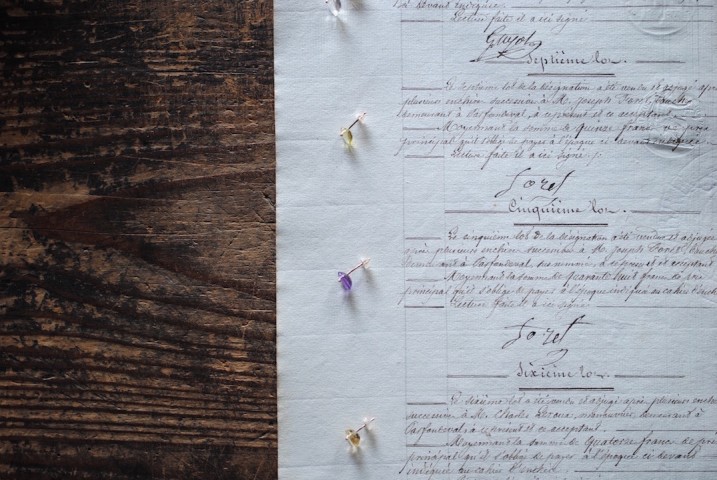 Lecture faite il a ici signé.
Septième lot.
Le septième lot de la désignation a été vendu et adjugé après
plusieurs enchères successives à Mr. Joseph Foret
demeurant à Parfondeval, à ce présent et ce acceptant.
Moyennant la somme de quinze francs de prix
principal qu'il s'oblige de payer à l'époque ci devant indiquée.
Lecture faite il a ici signé.
Foret
Cinquième lot.
Le cinquième lot de la désignation a été vendu et adjugé
après plusieurs enchères successives à Mr. Joseph Foret,
à Parfondeval à ce présent et ce acceptant
Moyennant la somme de quarante huit francs de prix
principal qu'il s'oblige de payer à l'époque indiquée au cahier
Lecture faite il a ici signé
Foret
Sixième lot.
Le sixième lot a été vendu et adjugé après plusieurs enchères
successives à Mr. Charles manouvrier, demeurant à
Parfondeval, à ce présent et ce acceptant.
Moyennant la somme de quatorze francs de prix
principal qu'il s'oblige de payer à l'époque ci devant
indiquée au cahier